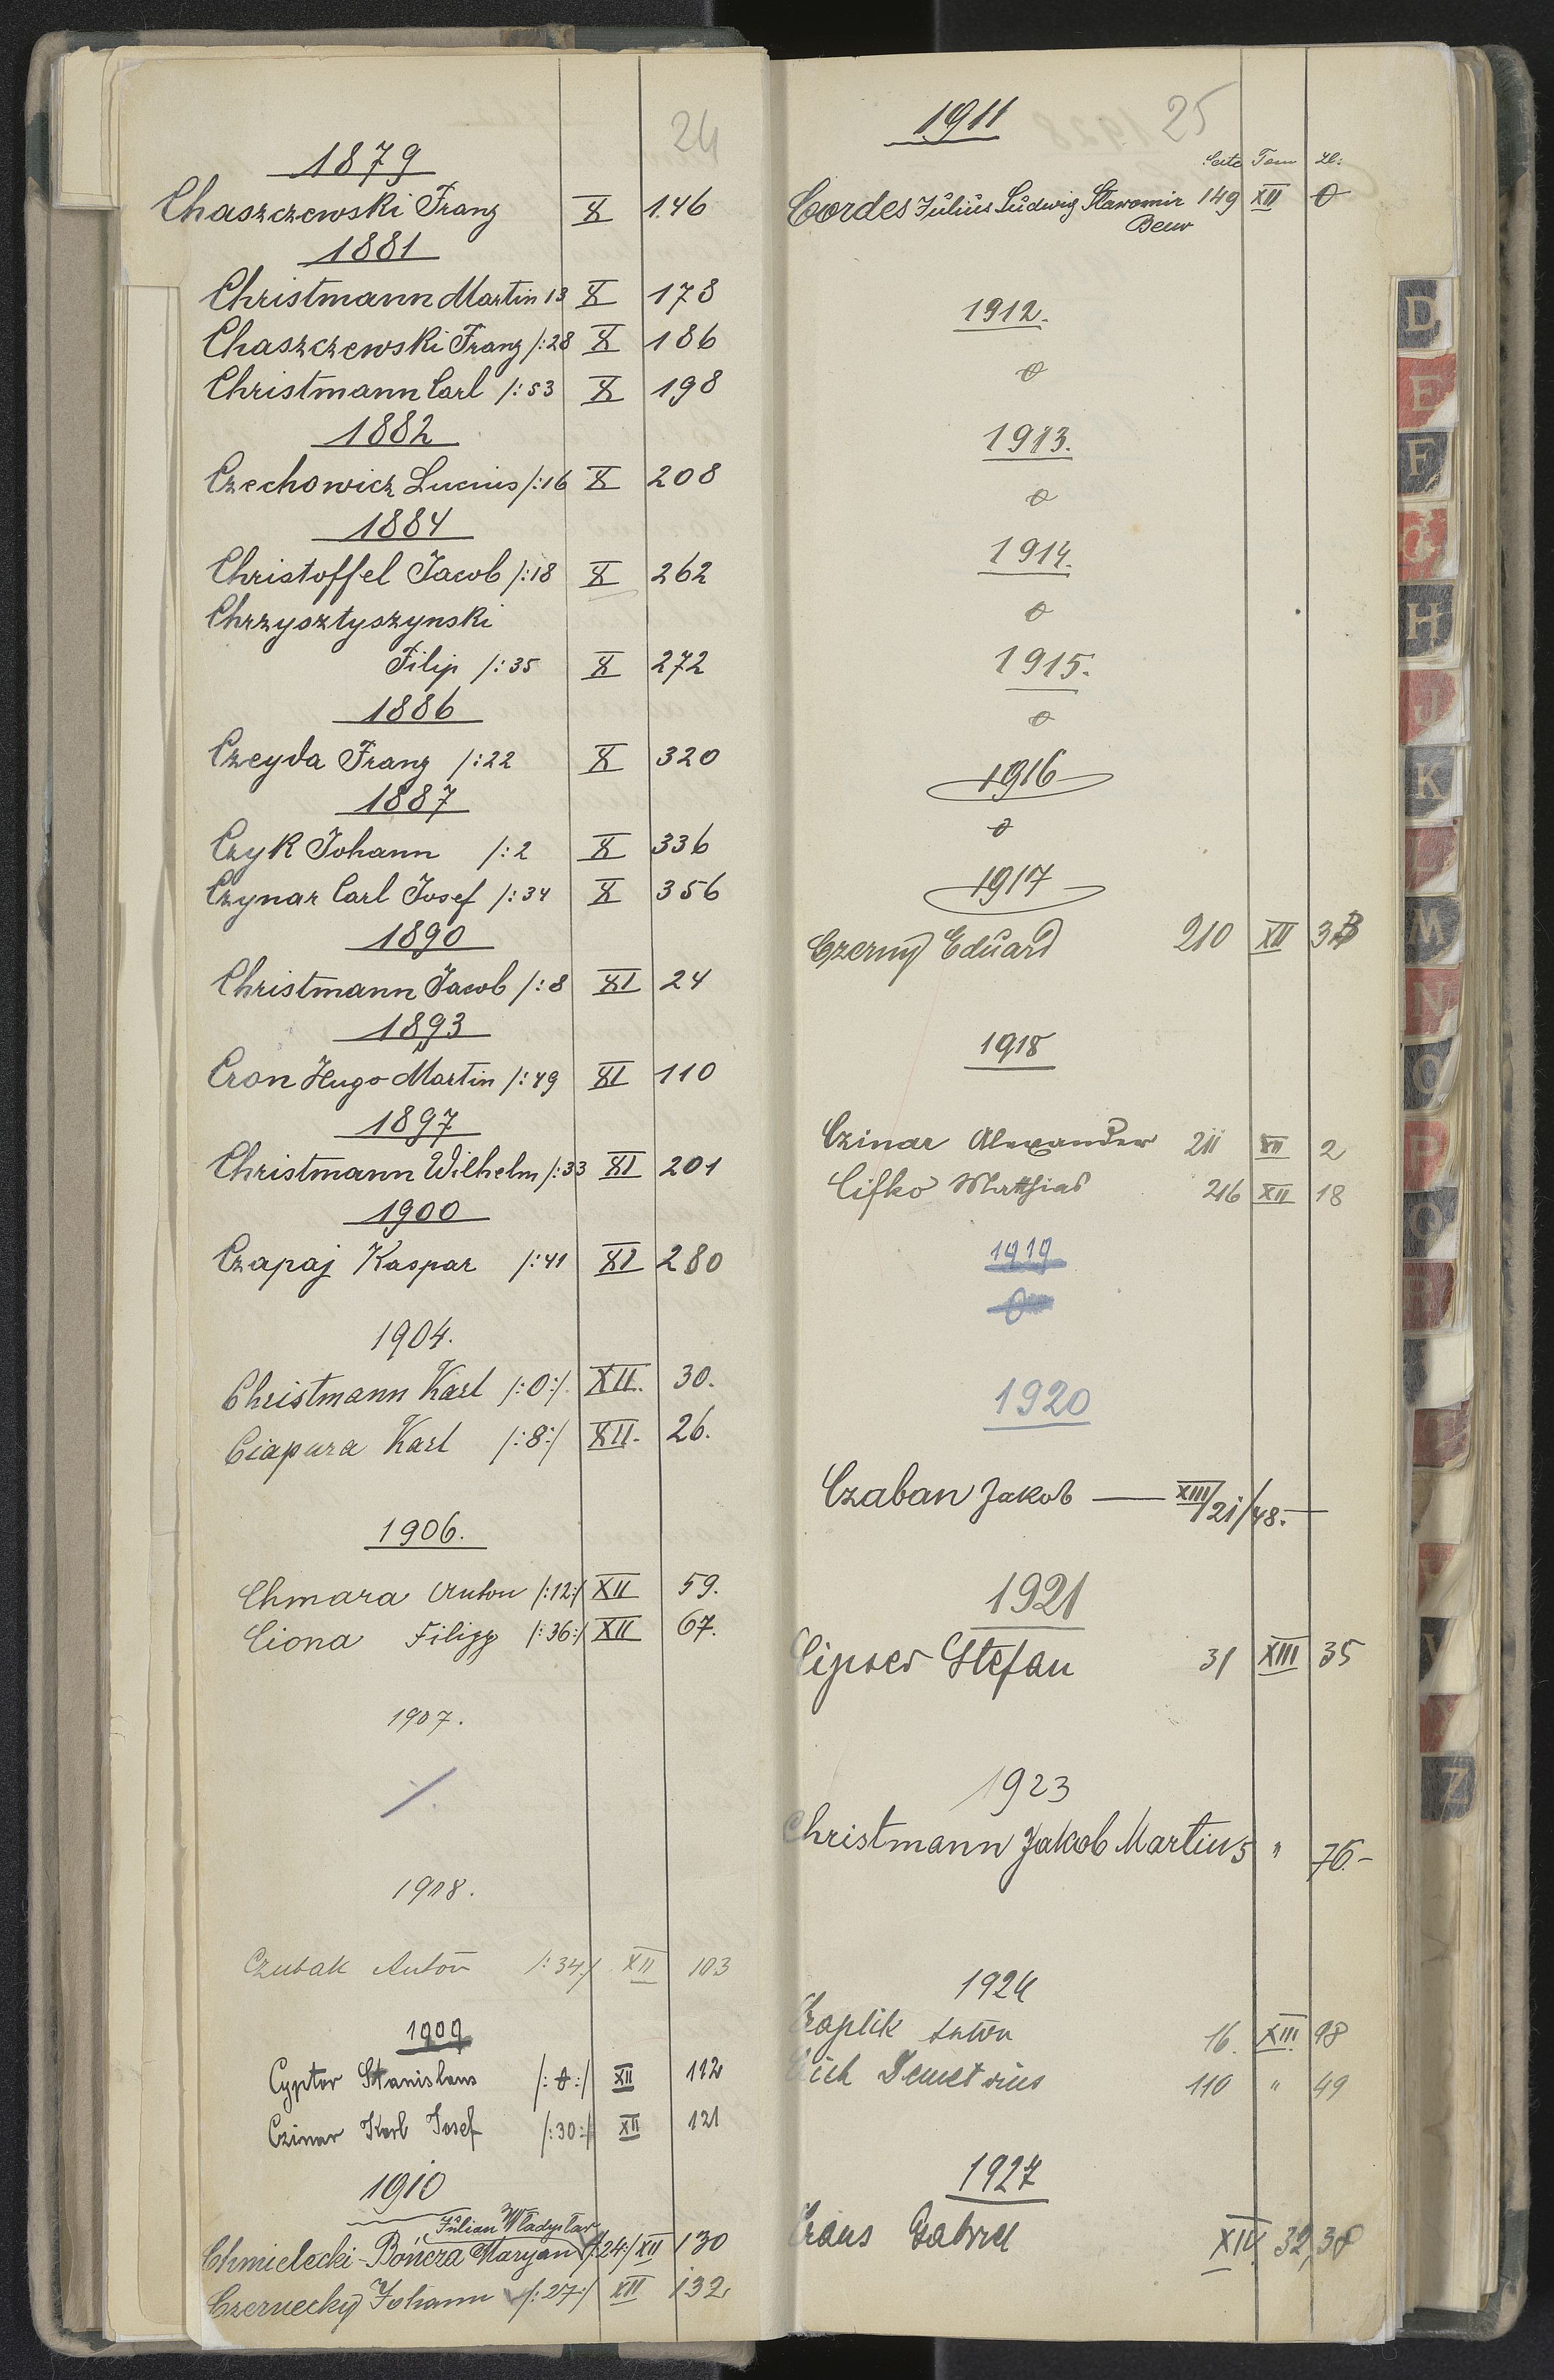 24
1879
Chaszczewski Franz X 146
1881
Christmann Martin 13 X 178
Chaszczewski Franz /:28 X 186
Christmann Carl /:53 X 198
1882
Czechowicz Lucius /:16 X 208
1884
Christoffel Jacob /:18 X 262
Chrzysztyszynski
Filip /:35 X 272
1886
Czeyda Franz /:22 X 320
1887
Czyk Johann /:2 X 336
Czynar Carl Josef /:34 X 356
1890
Christmann Jacob /:8 XI 24
1893
Cron Hugo Martin /:49 XI 110
1897
Christmann Wilhelm /:33 XI 201
1900
Czapaj Kaspar /:41 XI 280
1904.
Christmann Karl /:0:/ XII. 30.
Ciapura Karl /:8:/ XII. 26.
1906.
Chmara Anton /:12:/ XII 59.
Ciona Filipp /:36:/ XII 67.
1907.
/.
1908.
Czubak Anton /:34:/ XII 103
1909
Cyptor Stanislaus /:0:/ XII 112
Czinar Karl Josef /:30:/ XII 121
1910
Julian Władysław
Chmielecki-Bończa Maryan /:24:/ XII 130
Czernecky Johann /:27:/ XII 132
25
1911
Seite Tom Zl:
Cordes Julius Ludwig Sławomir 149 XII 0
1912.
0
1913.
0
1914.
0
1915.
0
1916
0
1917
Czerny Eduard 210 XII 3
1918
Czinar Alexander 211 XII 2
Cifko Matthias 216 XII 18
1919
0
1920
Czaban Jakob — XIII/21/48.—
1921
Cipser Stefan 31 XIII 35
1923
Christmann Jakob Martin 5 " 76.-
1924
Czaplik Anton 16. XIII 98
Cich Demetrius 110 " 49
1927
Craus Gabriel XIV 32,38
D
E
F
G
H
J
K
L
M
N
O
P
Q
R
V
Z